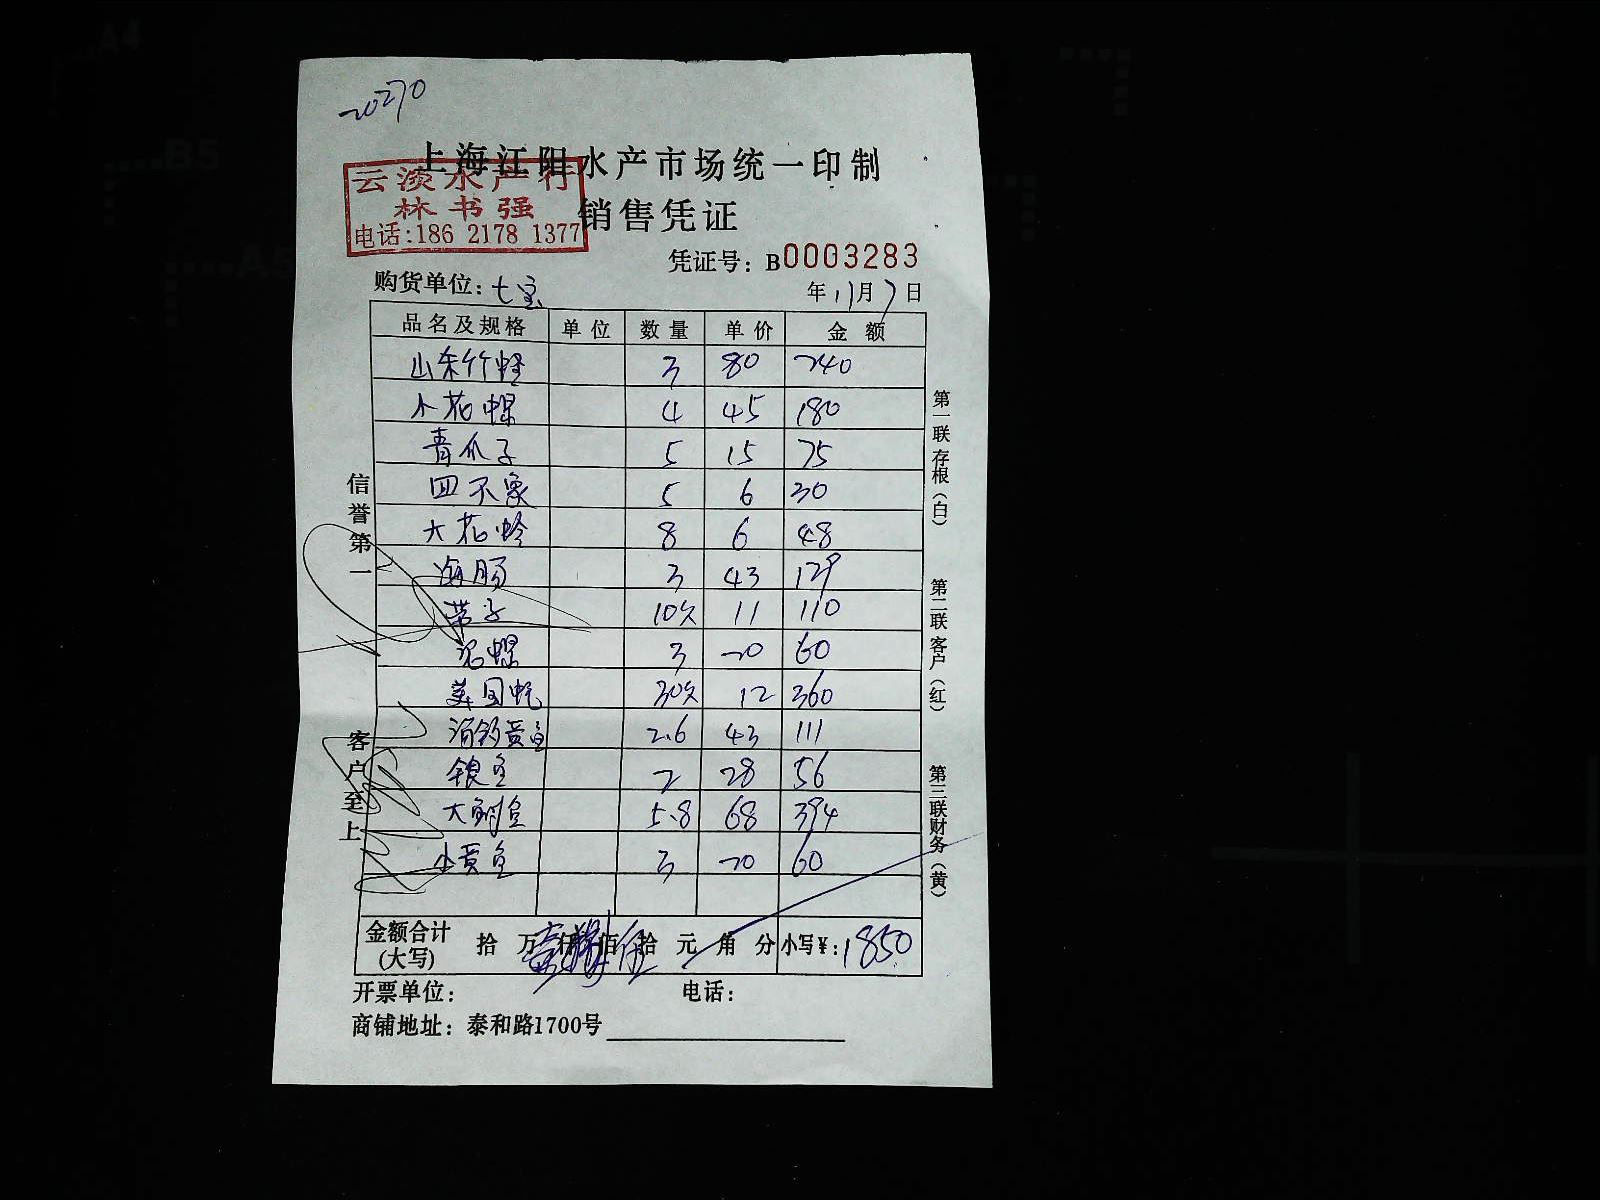 20270
上海江阳水产市场统一印制
云淡水产行
林书强
电话:186 2178 1377
销售凭证
凭证号: B0003283
购货单位: 七宝
年 11月 7日
品名及规格 单位 数量 单价 金额
山东竹蛏 3 80 240
小花螺 4 45 180
青爪子 5 15 75
四不象 5 6 30
大花蛤 8 6 48
海肠 3 43 129
带子 10只 11 110
泥螺 3 20 60
美国蚝 30只 12 360
海钓黄鱼 2.6 43 111
银鱼 2 28 56
大鲳鱼 5.8 68 394
小黄鱼 3 20 60
金额合计
(大写) 拾 万 仟 佰 拾 元 角 分 小写¥: 1850
开票单位: 电话:
商铺地址: 泰和路1700号
信誉第一
客户至上
第一联存根(白)
第二联客户(红)
第三联财务(黄)
A4
B5
A5